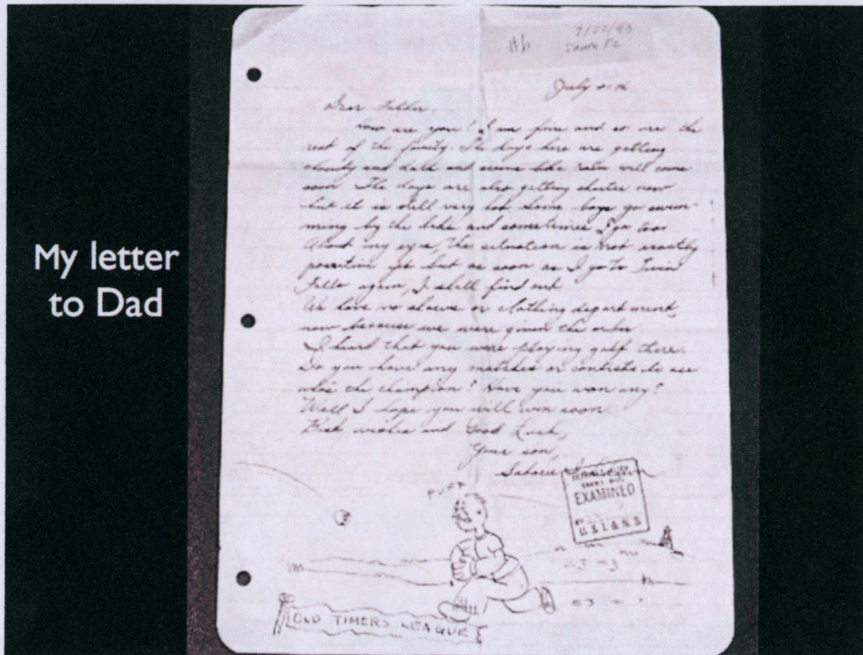 My letter
to Dad
7/22/43
Santa Fe
July
Dear Father,
How are you? I am fine and so are the
rest of the family. The days here are getting
cloudy and dark and seems like rain will come
soon. The days are also getting shorter now
but it is still very hot. Some boys go swim-
ming by the lake and sometimes I go too.
About my eyes, the situation is not exactly
positive yet but as soon as I go to Twin
Falls again, I shall find out.
We have no shows or clothing department,
now because we were given the order.
I heard that you were playing golf there.
Do you have any matches or contests to see
who's the champion? Have you won any?
Well I hope you will win soon.
Best wishes and Good Luck,
Your son,
PUFF
EXAMINED
BY
U.S.I.&N.S
OLD TIMERS LEAGUE